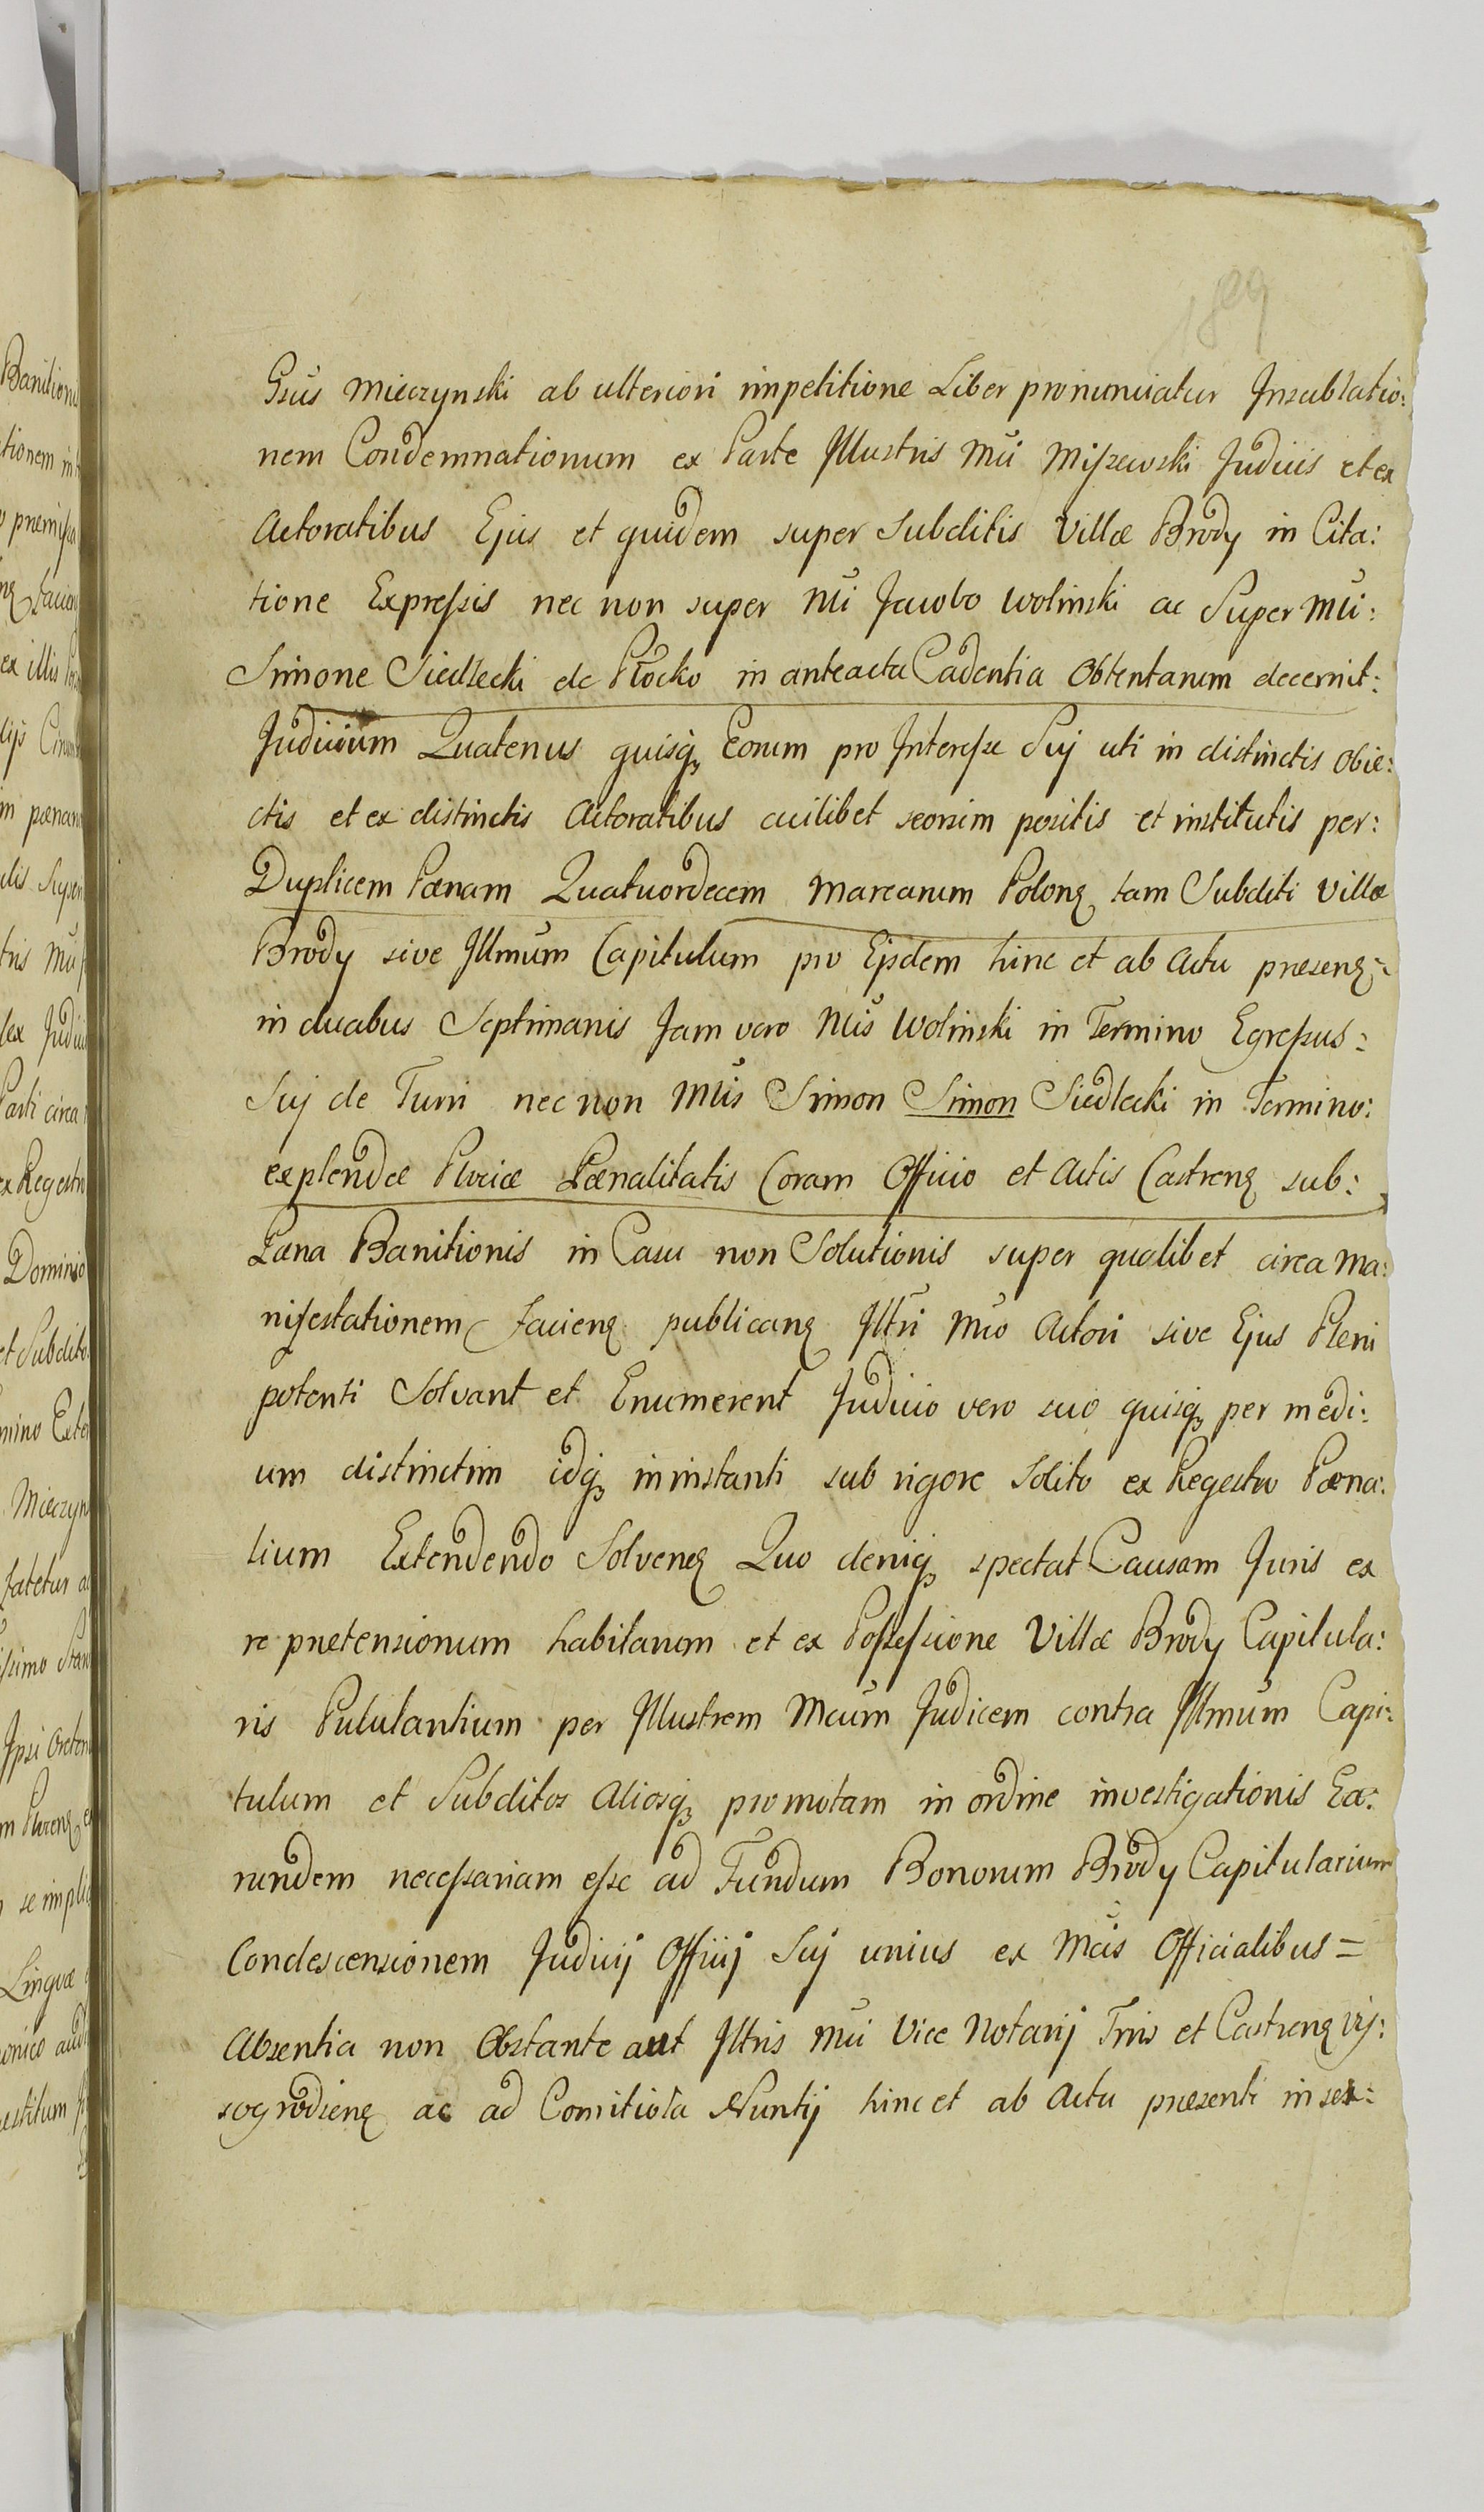 189
Gsus Mieczynski ab ulteriori impetitione Liber pronunciatur Insublatio:
nem Condemnationum ex Parte Illustris Mci Miszewski Judicis et ex
Actoratibus Ejus et quidem super Subditis Villæ Brody in Cita:
tione Expressis nec non super Nli Jacobo Wolinski ac Super Mci:
Simone Siedlecki de Płocko in anteacta Cadentia Obtentarum decernit:
Judicium Quatenus quisqȝ Eorum pro Interesse Suj uti in distinctis Obie:
ctis et ex distinctis Actoratibus cuilibet seorsim positis et institutis per:
Duplicem Pœnam Quatuordecem Marcarum Polonȝ tam Subditi Villæ
Brody sive Illmum Capitulum pro Eisdem hinc et ab Actu presenȝ=
in duabus Septimanis Jam vero Nlis Wolinski in Termino Egressus=
Suj de Turri nec non Mcis Simon Simon Siedlecki in Termino:
explendæ Plocicæ Pœnalitatis Coram Officio et Actis Castrenȝ sub:
Pœna Banitionis in Casu non Solutionis super qualibet circa Ma:
nifestationem Facienȝ publicanȝ Illtri Mco Actori sive Ejus Pleni
potenti Solvant et Enumerent Judicio vero suo quisqȝ per medi:
um distinctim idqȝ in instanti sub rigore Solito ex Regestro Pœna:
lium Extendendo Solvenȝ Quo deniqȝ spectat Causam Juris ex
re prætensionum habitarum et ex Possessione Villæ Brody Capitula:
ris Pululantium per Illustrem Mcum Judicem contra Illmum Capi:
tulum et Subditos Aliosqȝ promotam in ordine investigationis Ea:
rundem necessariam esse ad Fundum Bonorum Brody Capitularium
Condescensionem Judicij Officij Suj unius ex Mcis Officialibus=
Absentia non Obstante aut Illtris Mci Vice Notarij Trris et Castrenȝ Vy:
sogrodienȝ ac ad Comitiola Nuntij hinc et ab Actu præsenti in sex: